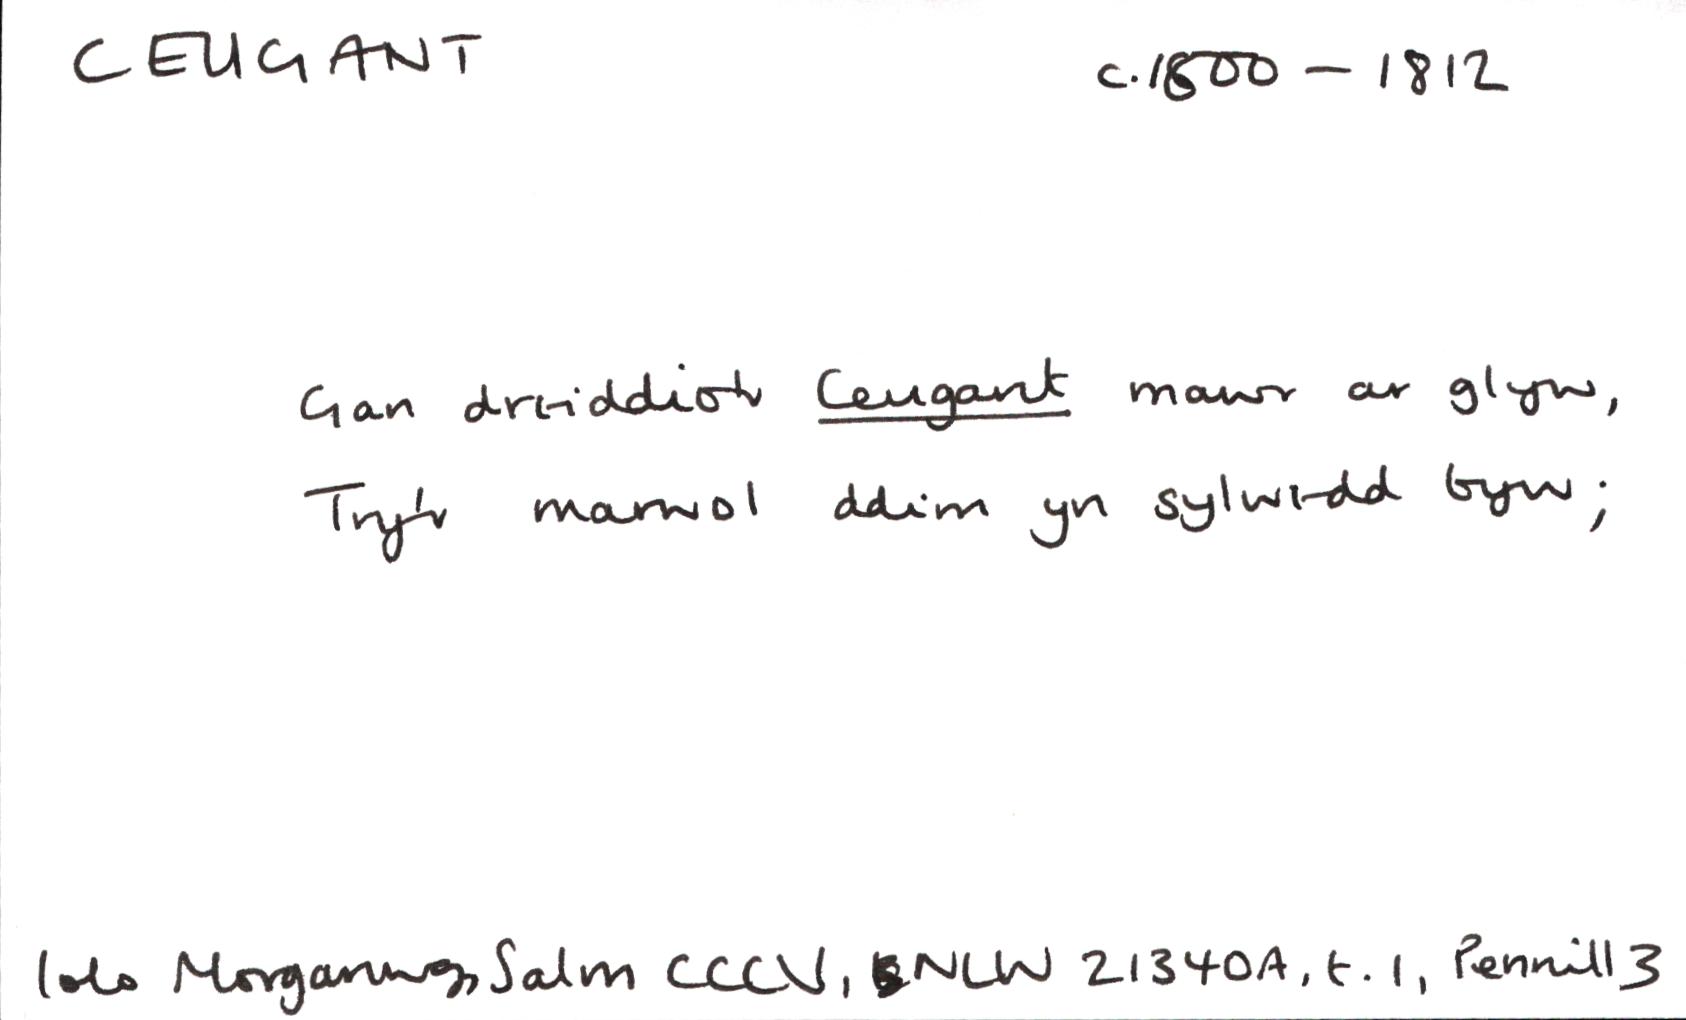 CEUGANT c.1800 – 1812
Gan dreiddio'r Ceugant mawr ar glyw,
Try'r marwol ddim yn sylwedd byw;
Iolo Morganwg, Salm CCCV, NLW 21340A, t.1, Pennill 3